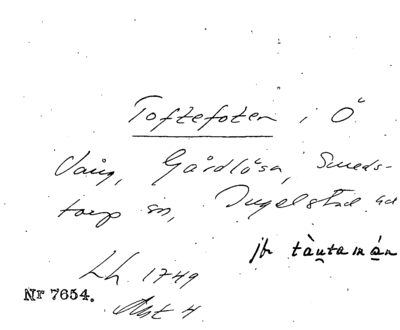 Toftefoten i Ö
Vång, Gårdlösa, Smeds-
torp sn, Ingelstad hd
jfr tàu̯tamán
Lh. 1749
Nr 7654. Akt 4